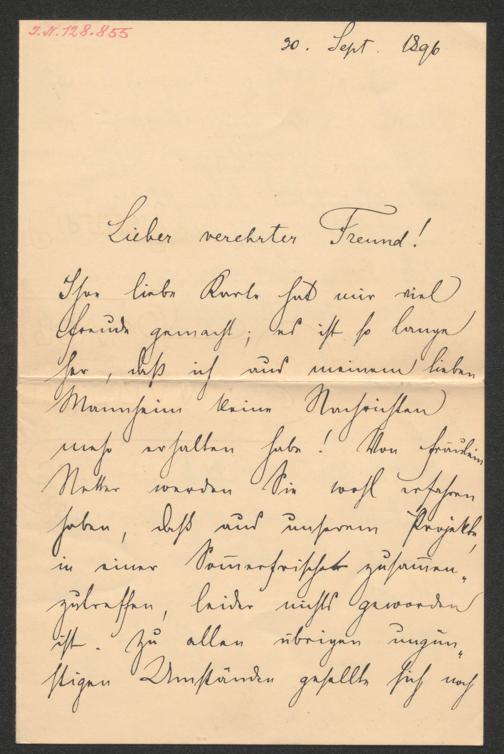 J.N. 128.855
30. Sept. 1896
Lieber verehrter Freund!
Ihre liebe Karte hat mir viel
Freude gemacht; es ist so lange
her, daß ich aus meinem lieben
Mannheim keine Nachrichten
mehr erhalten habe! Von Fräulein
Netter werden Sie wohl erfahren
haben, daß aus unserem Projekte,
in einer Sommerfrische zusammen-
zutreffen, leider nichts geworden
ist. Zu allen übrigen ungün-
stigen Umständen gesellte sich noch